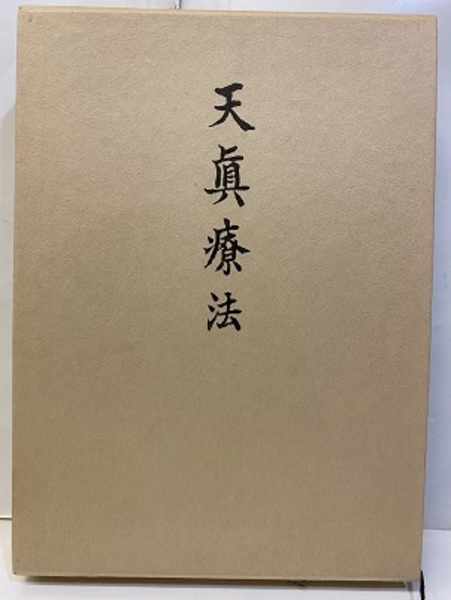 天眞療法